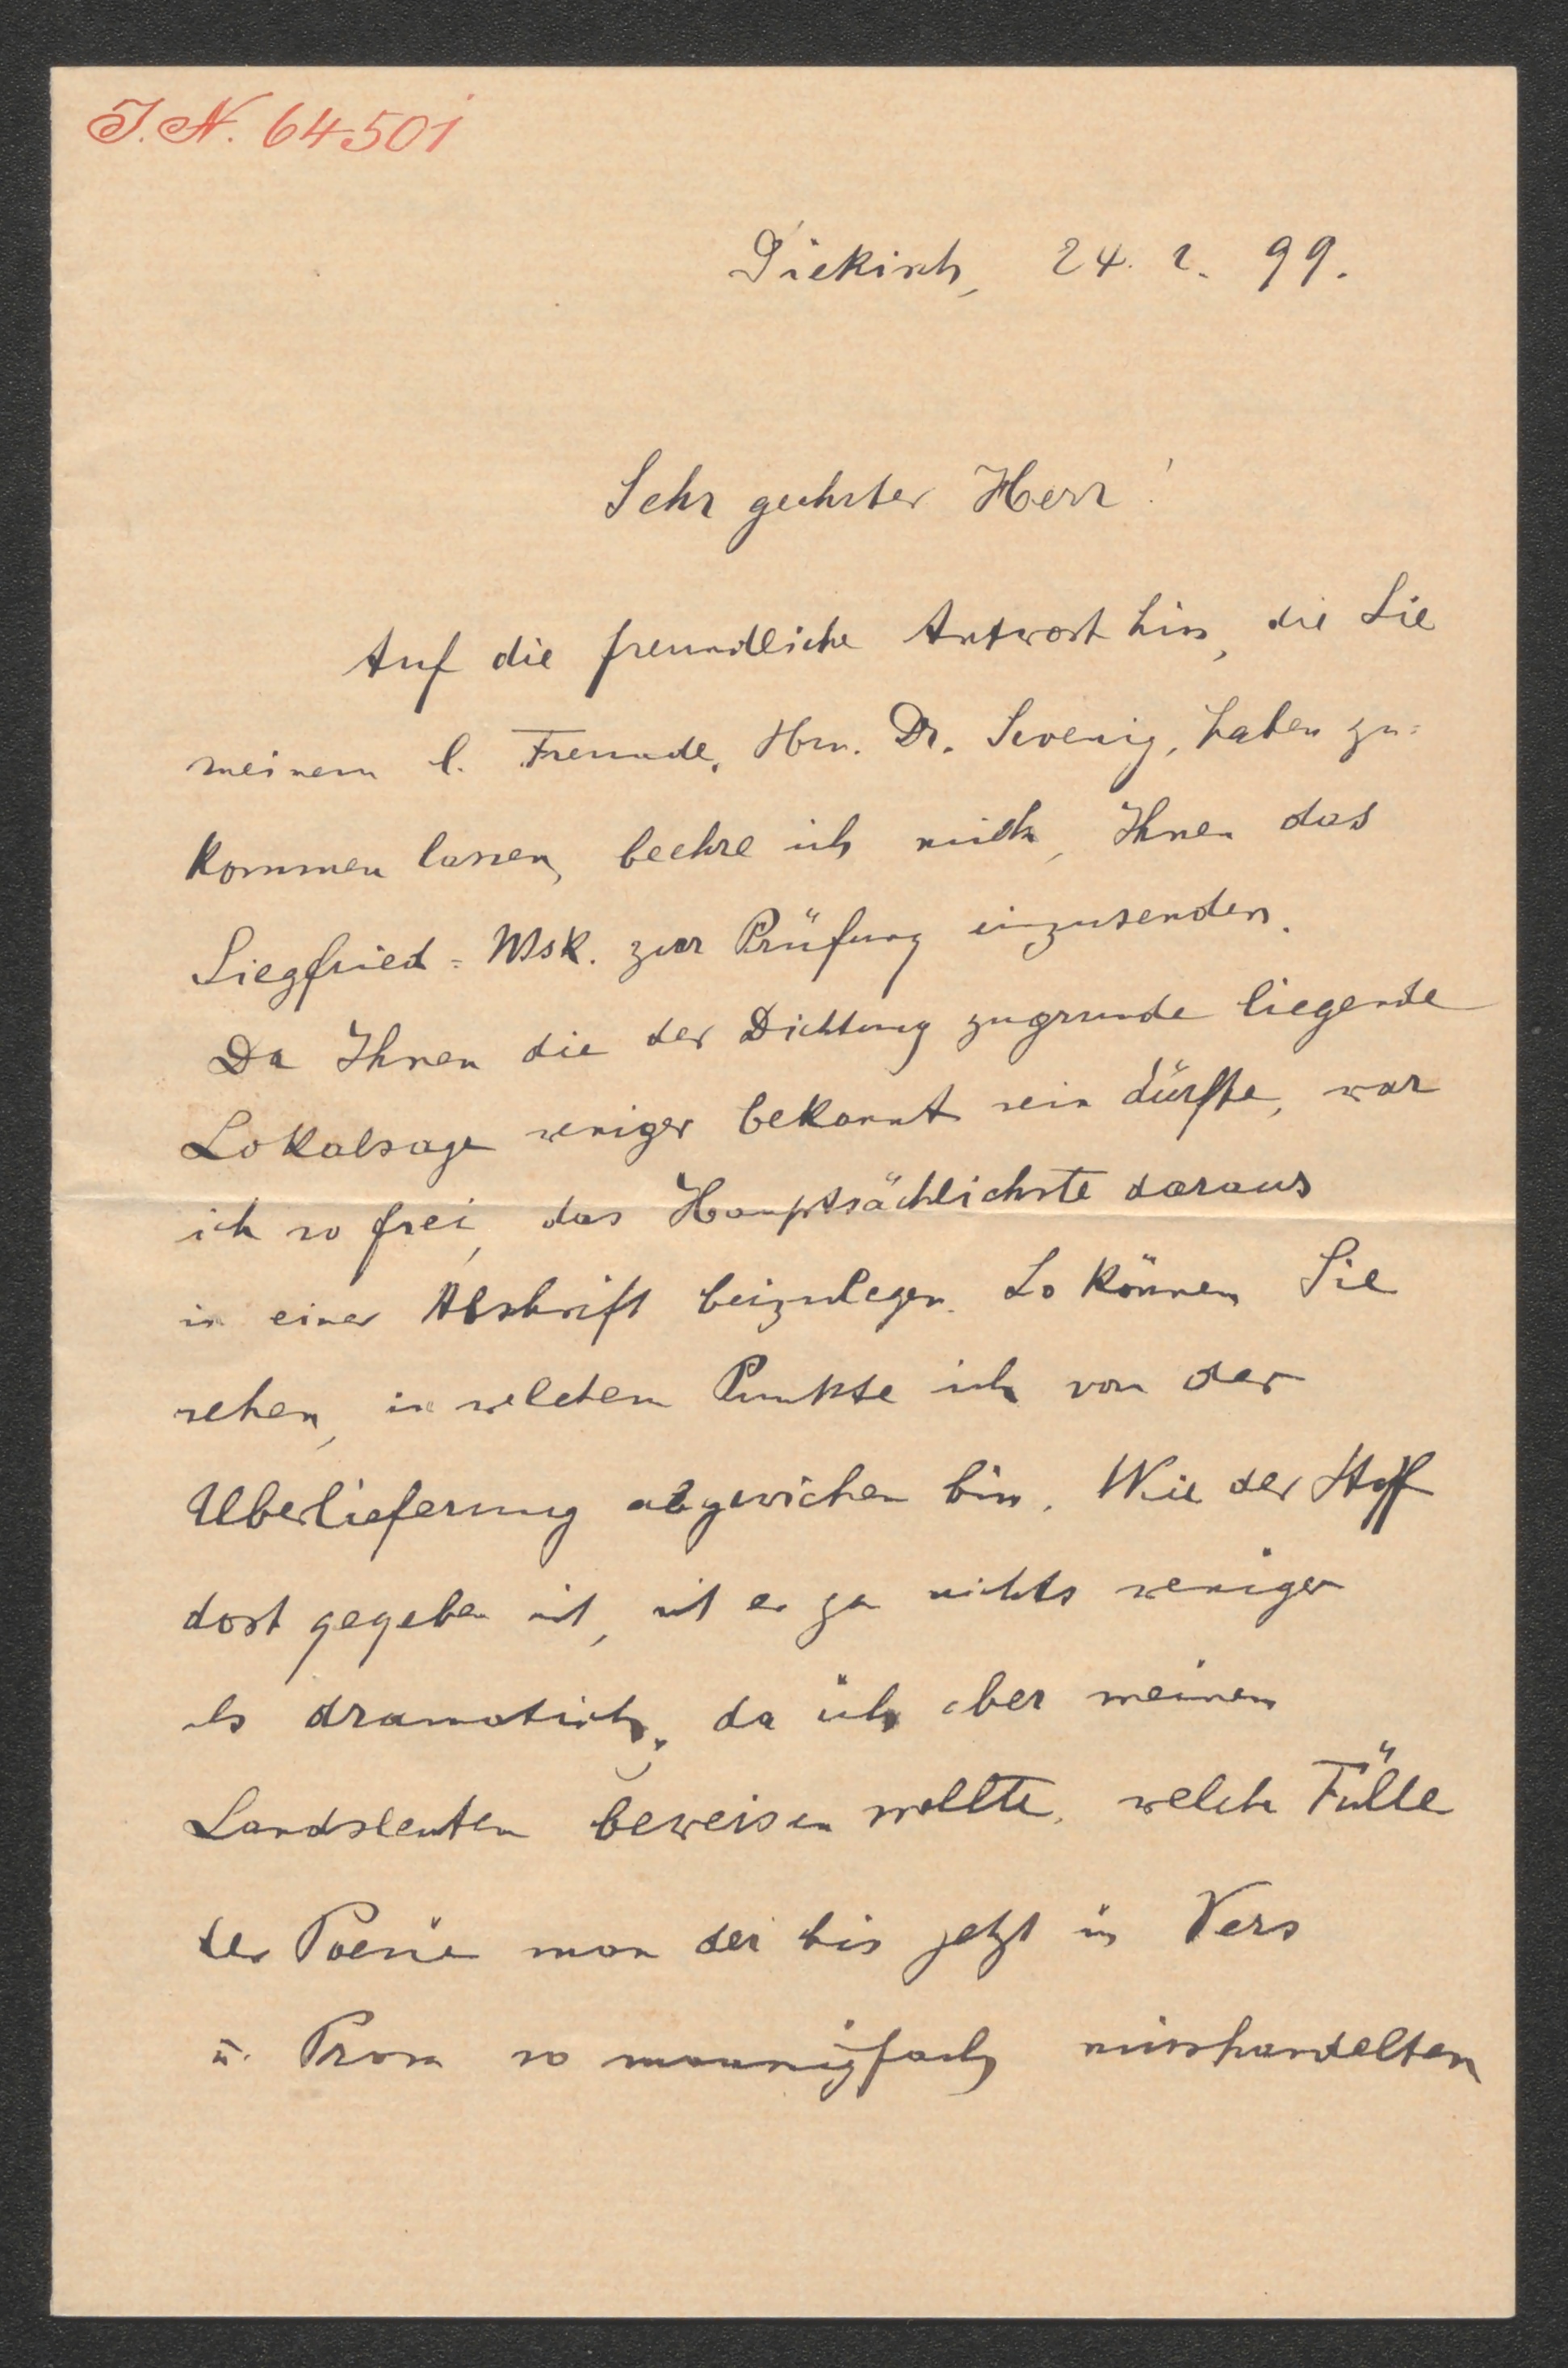 J. N. 64501
Diekirch, 24. 2. 99.
Sehr geehrter Herr!
Auf die freundliche Antwort hin, die Sie
meinem l. Freunde, Hrn. Dr. Sevenig, haben zu=
kommen lassen, beehre ich mich, Ihnen das
Siegfried=Msk. zur Prüfung einzusenden.
Da Ihnen die der Dichtung zugrunde liegende
Lokalsage weniger bekannt sein dürfte, war
ich so frei, das Hauptsächlichste daraus
in einer Abschrift beizulegen. So können Sie
sehen, in welchem Punkte ich von der
Uberlieferung abgewichen bin. Wie der Stoff
dort gegeben ist, ist er ja nichts weniger
als dramatisch, da ich aber meinen
Landsleuten beweisen wollte, welche Fülle
der Poesie man der bis jetzt in Vers
u. Prosa so mannigfach misshandelten